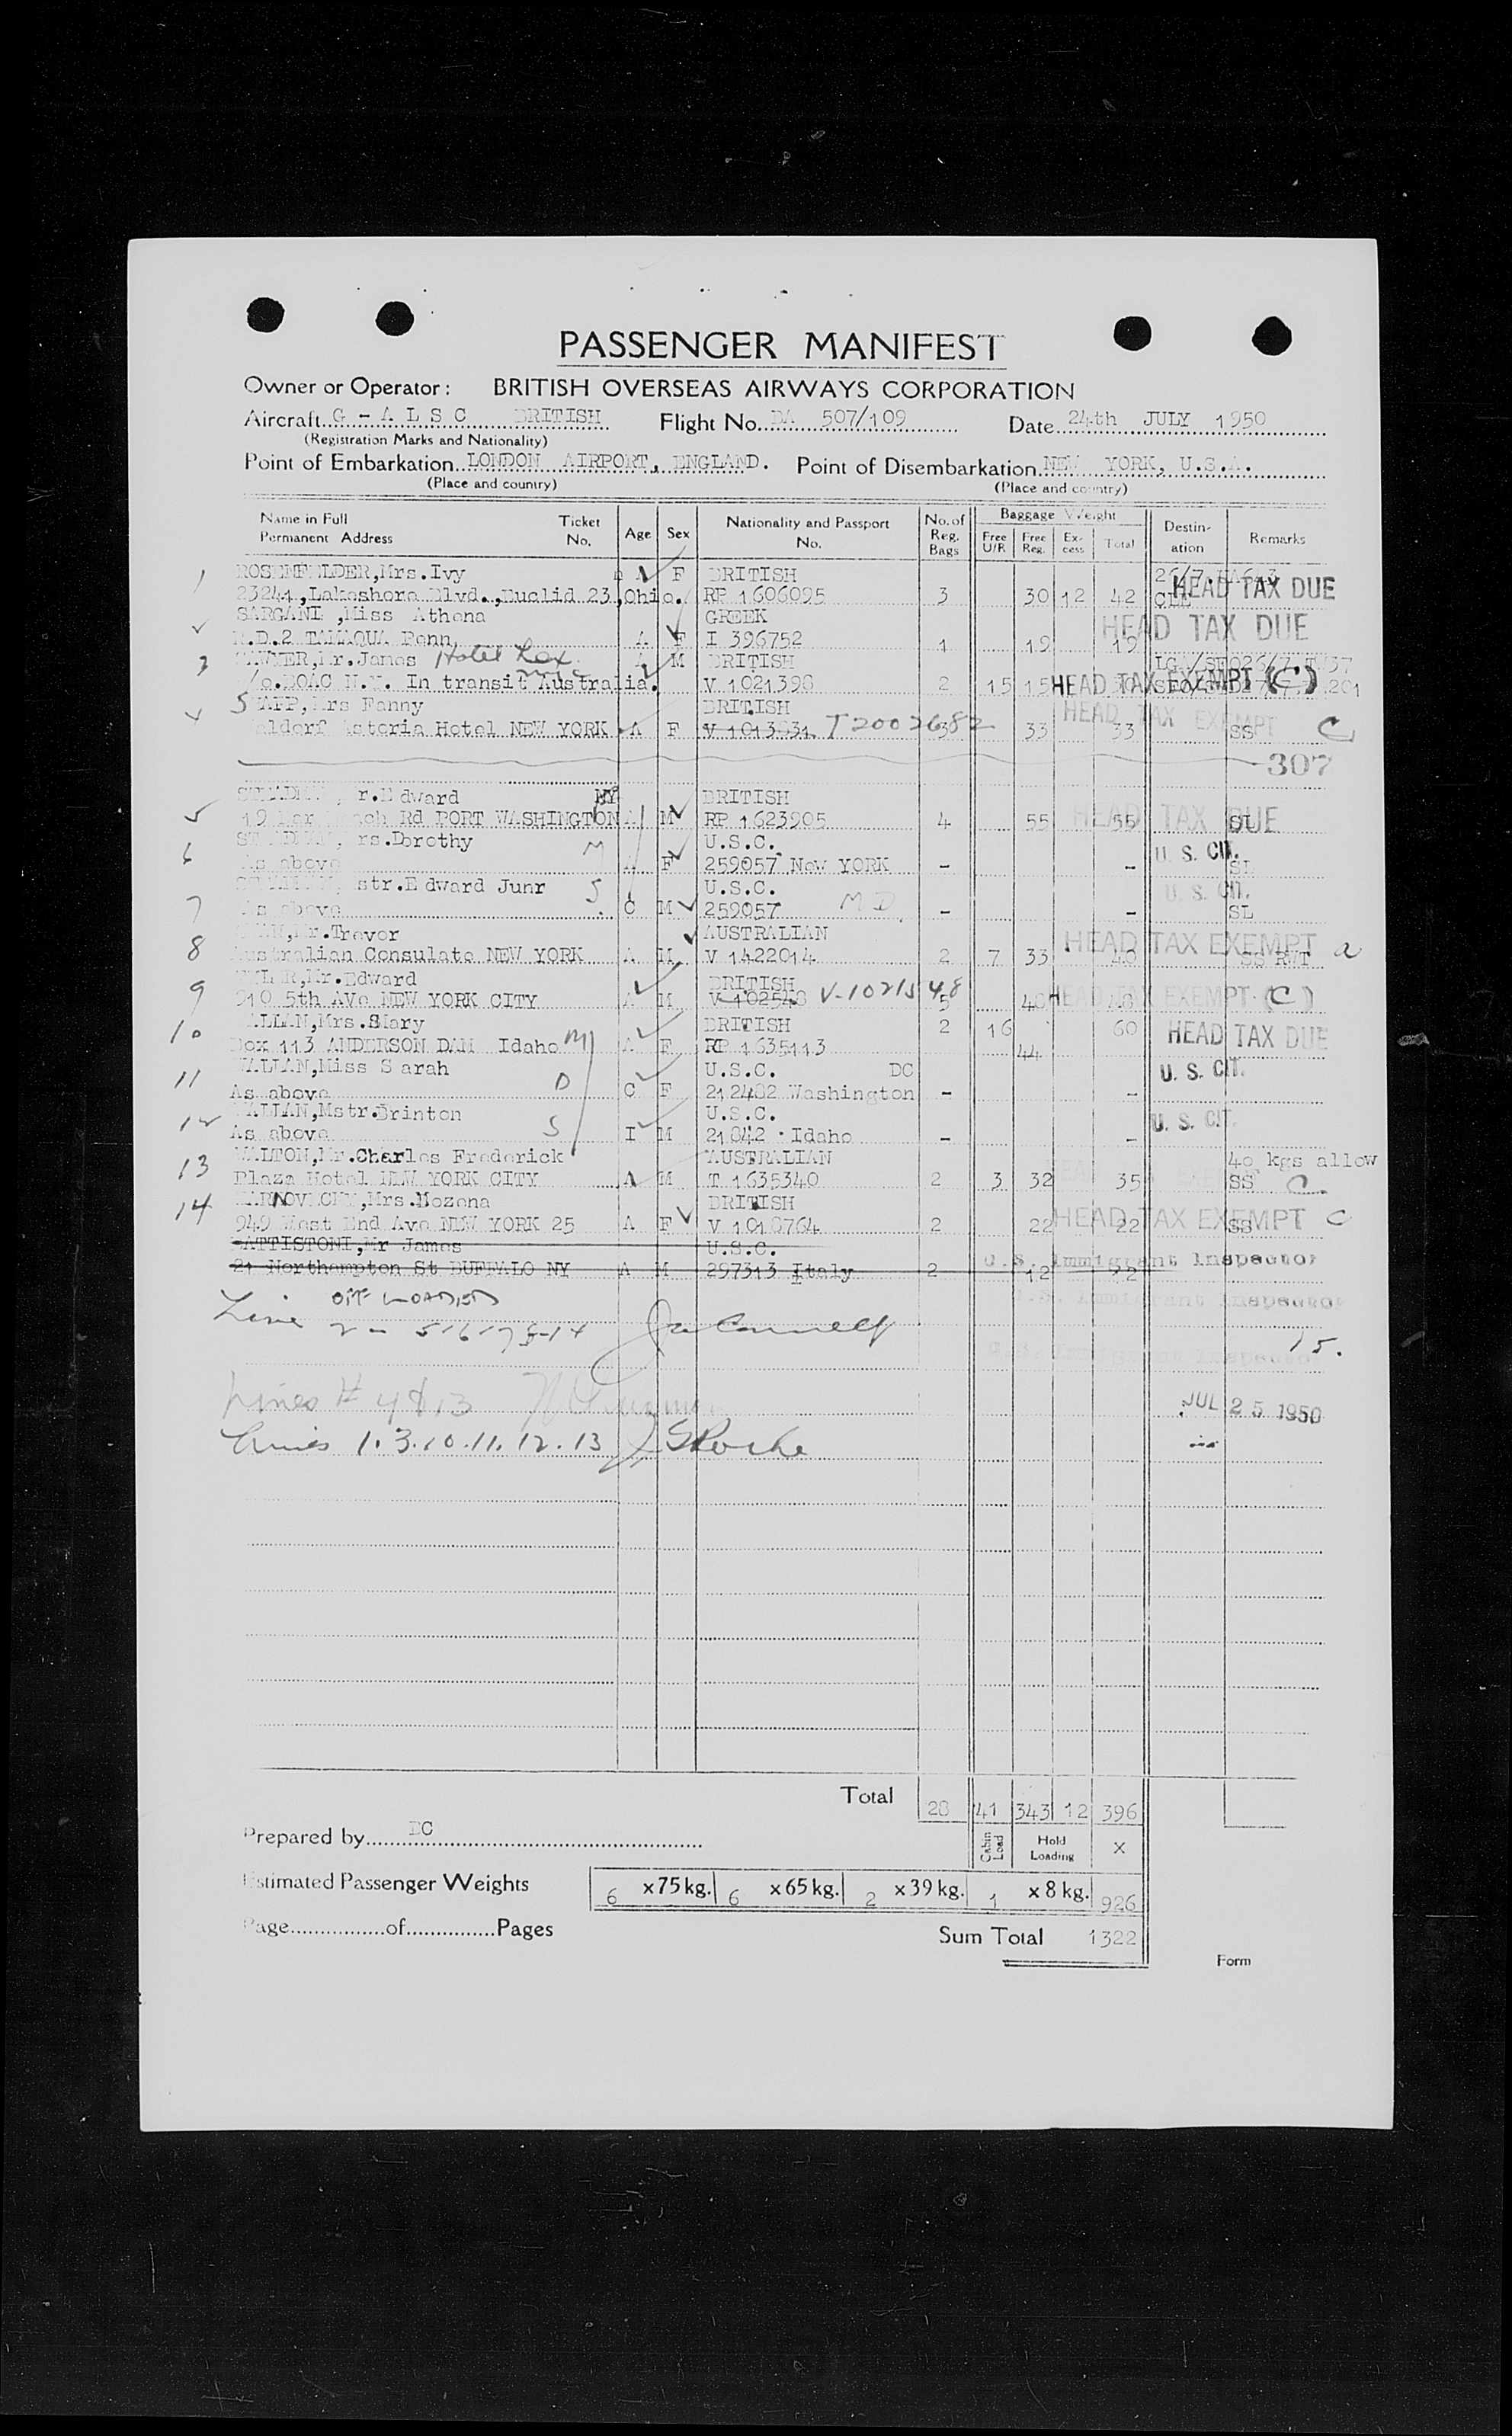 PASSENGER MANIFEST
Owner or Operator: BRITISH OVERSEAS AIRWAYS CORPORATION
Aircraft G - A L S C BRITISH Flight No. BA 507/109 Date 24th JULY 1950
(Registration Marks and Nationality)
Point of Embarkation LONDON AIRPORT, ENGLAND. Point of Disembarkation NEW YORK, U.S.A.
(Place and country) (Place and country)
Name in Full Permanent Address Ticket No. Age Sex Nationality and Passport No. No. of Reg. Bags Baggage Weight Free U/R Free Reg. Ex-cess Total Destin-ation Remarks
1 ROSENFELDER, Mrs. Ivy A F BRITISH HEAD TAX DUE
23241, Lakeshore Blvd., Euclid 23, Ohio. RP 1606095 3 30 12 42 CLE
SARGANI, Miss Athena GREEK HEAD TAX DUE
R.D.2 TAMAQUA Penn A F I 396752 1 19 19
3 Mr. James Hotel Lex A M BRITISH
c/o. BOAC N.Y. In transit Australia. V 1021398 2 15 15 HEAD TAX EXEMPT (C)
4 Mrs Fanny BRITISH HEAD TAX EXEMPT C
Waldorf Astoria Hotel NEW YORK A F V 1013831 T2002682 3 33 33 SS
307
5 Mr. Edward NY BRITISH
Rd PORT WASHINGTON A M RP 1623905 4 55 55 HEAD TAX DUE SL
6 Mrs. Dorothy M U.S.C. U. S. CIT.
As above A F 259057 New YORK - - SL
7 Mstr. Edward Junr S U.S.C. U. S. CIT.
As above C M 259057 M D - - SL
8 Mr. Trevor AUSTRALIAN HEAD TAX EXEMPT a
Australian Consulate NEW YORK A M V 1422014 2 7 33 40 SS RWT
9 Mr. Edward BRITISH
910 5th Ave NEW YORK CITY A M V 102548 V-1021548 5 48 48 HEAD TAX EXEMPT (C)
10 WALLAN, Mrs. Mary BRITISH 2 16 60 HEAD TAX DUE
Box 113 ANDERSON DAM Idaho M A F RP 1635113 44
11 WALLAN, Miss Sarah D U.S.C. DC U. S. CIT.
As above C F 212482 Washington - -
12 WALLAN, Mstr. Brinton S U.S.C. U. S. CIT.
As above I M 21842 Idaho - -
13 WALTON, Mr. Charles Frederick AUSTRALIAN 40 kgs allow
Plaza Hotel NEW YORK CITY A M T 1635340 2 3 32 35 SS C
14 Mrs. Bozena BRITISH
949 West End Ave NEW YORK 25 A F V 1018764 2 22 22 HEAD TAX EXEMPT C SS
BATTISTONI, Mr James U.S.C.
21 Northampton St BUFFALO NY A M 297313 Italy 2 12 12 U.S. Immigrant Inspector
OFF LOADED U.S. Immigrant Inspector
Line 2 - 5/6/7 8-14
15.
U.S. Immigrant Inspector
Lines # 4 & 13 JUL 25 1950
Lines 1. 3. 10. 11. 12. 13
Total 28 41 343 12 396
Prepared by Cabin Load Hold Loading X
Estimated Passenger Weights 6 x 75 kg. 6 x 65 kg. 2 x 39 kg. 1 x 8 kg. 926
Page of Pages Sum Total 1322
Form